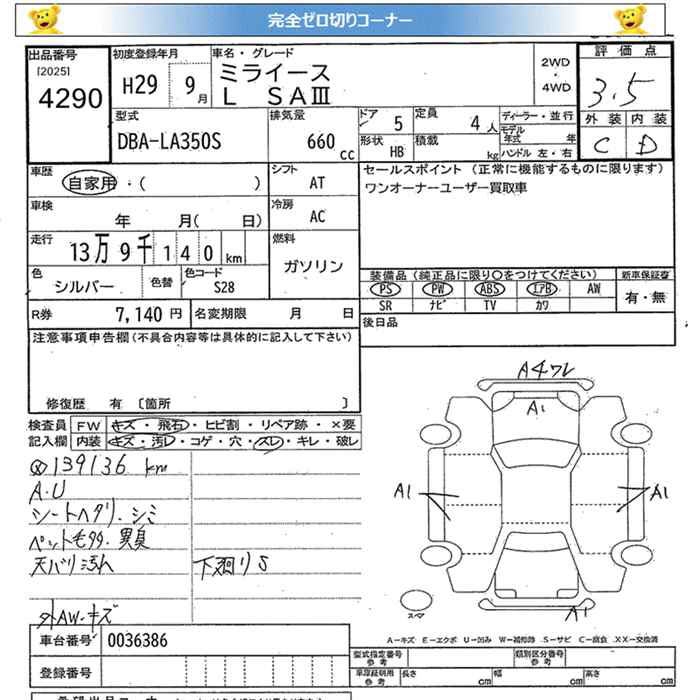 完全ゼロ切りコーナー
出品番号 [2025] 4290
初度登録年月 H29 9月
車名・グレード ミライース L SAⅢ
2WD・4WD
評価点 3.5
外装 内装 C D
型式 DBA-LA350S
排気量 660 cc
ドア 5 定員 4人
形状 HB 積載 kg
ディーラー・並行
モデル年式 年
ハンドル 左・右
車歴 自家用・( )
シフト AT
車検 年 月( 日)
冷房 AC
走行 13万9千140 km
燃料 ガソリン
色 シルバー 色替 色コード S28
R券 7,140 円 名変期限 月 日
セールスポイント (正常に機能するものに限ります)
ワンオーナーユーザー買取車
装備品 (純正品に限り〇をつけてください) 新車保証書
PS PW ABS エアB AW 有・無
SR ナビ TV カワ
後日品
注意事項申告欄 (不具合内容等は具体的に記入して下さい)
修復歴 有 〔箇所 〕
検査員 FW キズ・飛石・ヒビ割・リペア跡・×要
記入欄 内装 キズ・汚レ・コゲ・穴・スレ・キレ・破レ
139136 km
A.U
シートヘタリ.シミ
ペット毛多.異臭
天バリ汚れ 下廻りS
外AW-キズ
A4ワレ
A1
A1
A1
A1
スペア
A-キズ E-エクボ U-凹み W-補修跡 S-サビ C-腐食 XX-交換済
車台番号 0036386
登録番号
型式指定番号 参考 類別区分番号 参考
車庫証明用 参考 長さ cm 幅 cm 高さ cm